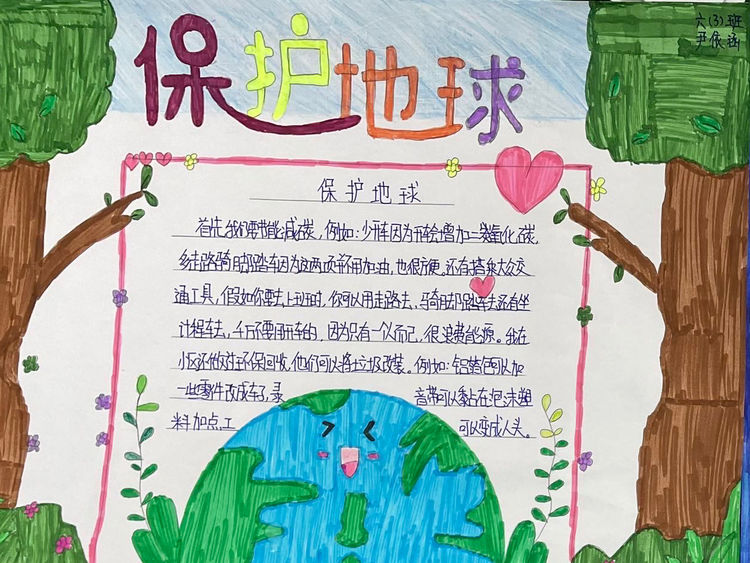 保护地球
六(3)班
尹依涵
保护地球
首先我们要节能减碳，例如：少开车因为开车会增加二氧化碳，
多走路骑脚踏车因为这两项不用加油，也很方便，还有搭乘大众交
通工具，假如你要去上班时，你可以用走路去、骑脚踏车去还有坐
计程车去，千万不要用开车的，因为只有一个人而已，很浪费能源。我在
小区还做过环保回收，他们可以将垃圾改装。例如：铝箔包可以加
一些零件改成车子，录音带可以黏在泡沫塑
料加点工可以变成人头。